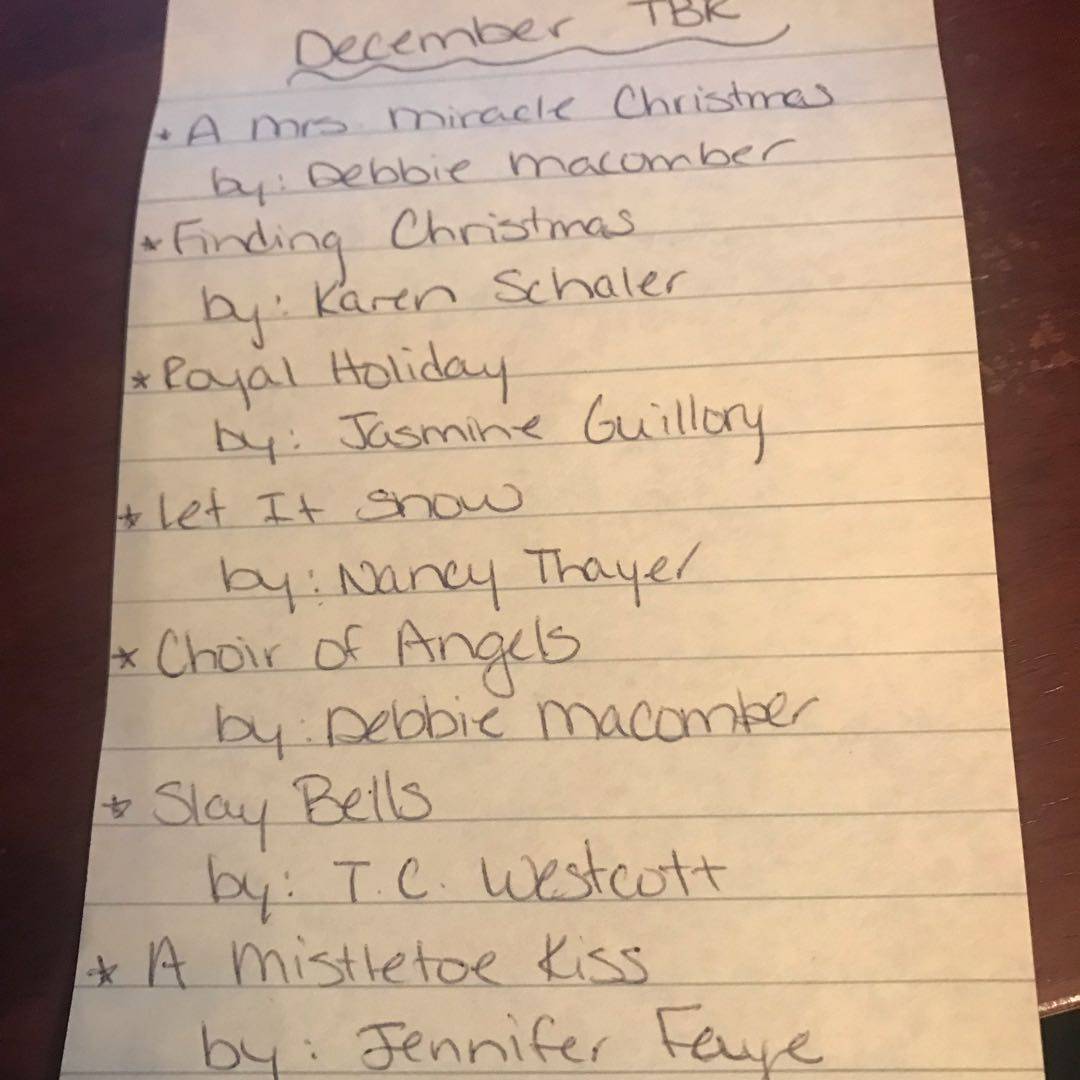 December TBR
* A Mrs. Miracle Christmas
by: Debbie Macomber
* Finding Christmas
by: Karen Schaler
* Royal Holiday
by: Jasmine Guillory
* Let It Snow
by: Nancy Thayer
* Choir of Angels
by: Debbie Macomber
* Slay Bells
by: T.C. Westcott
* A Mistletoe Kiss
by: Jennifer Faye